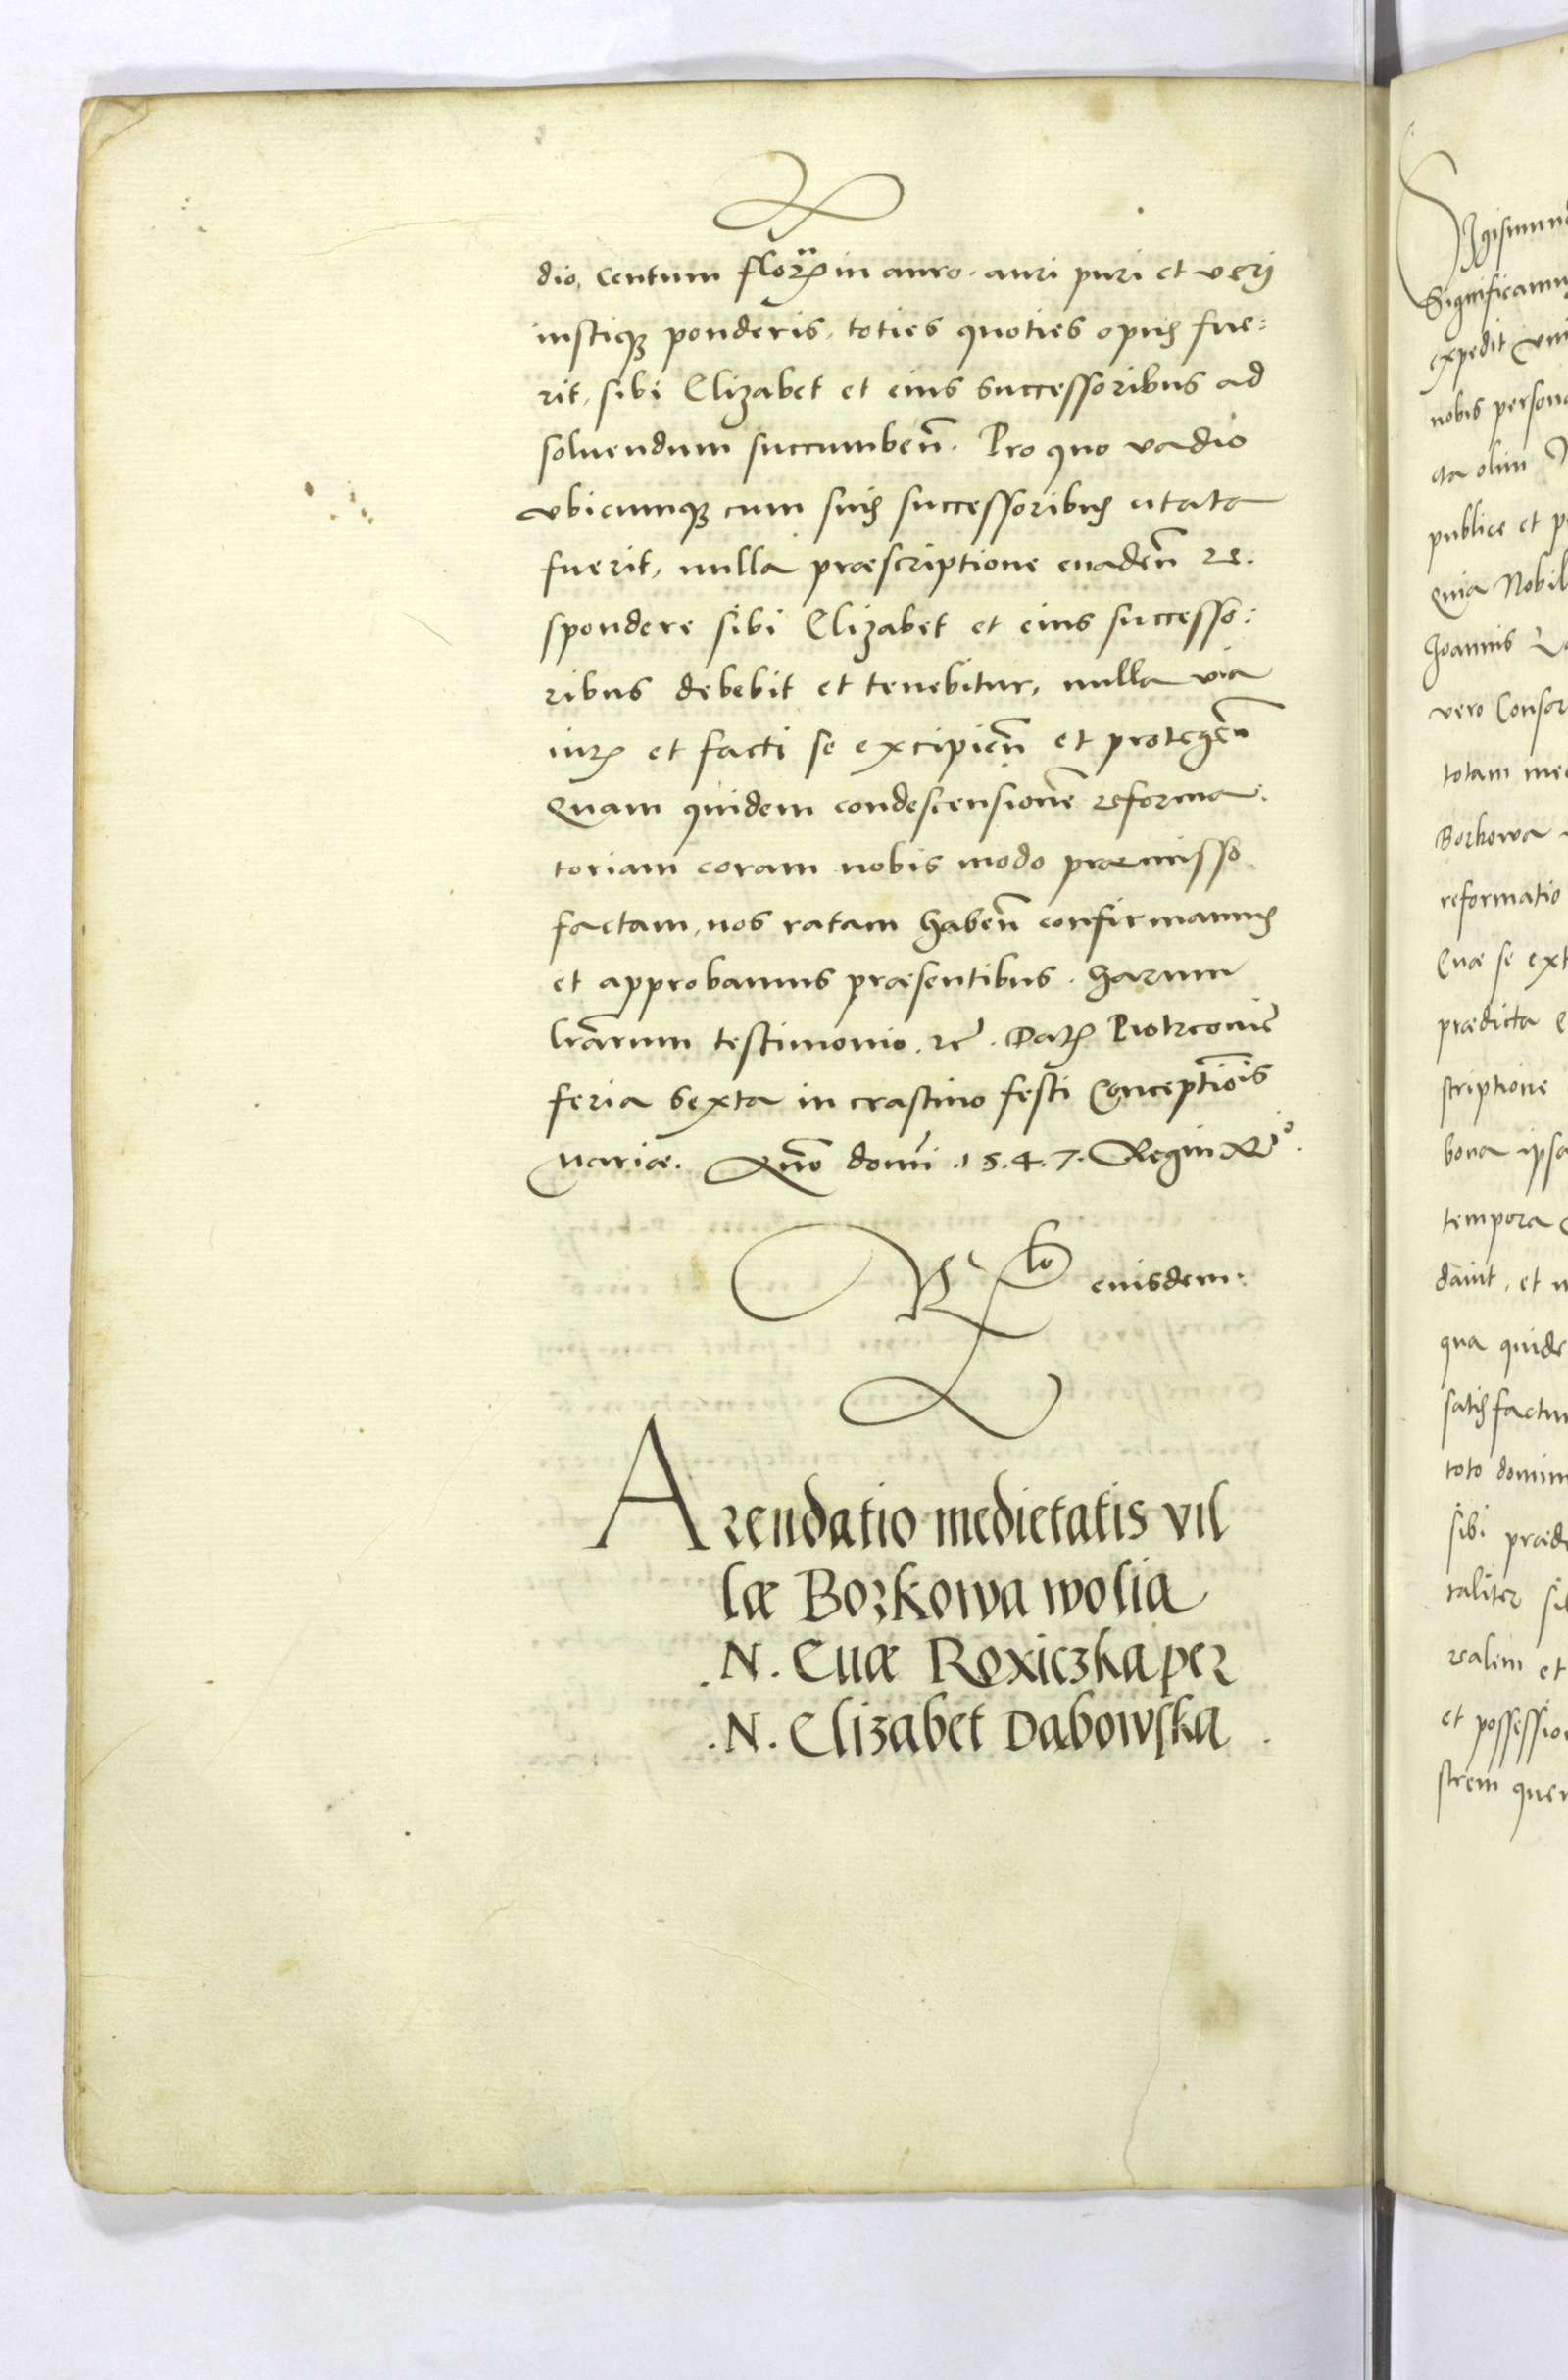 dio, Centum floꝝ in auro. auri puri et verj
iustiqꝫ ponderis, toties quoties opus fue:
rit, sibi Elizabet et eius successoribus ad
soluendum succumbeñ. Pro quo vadio
vbicumqꝫ cum suis successoribus citata
fuerit, nulla præscriptione euadeñ re.
spondere sibi Elizabet et eius successo:
ribus debebit et tenebitur, nulla via
iurꝭ et facti se excipieñ et protegeñ
Quam quidem condescensionẽ reforma:
toriam coram nobis modo præmisso
factam, nos ratam habeñ confirmamus
et approbamus præsentibus. harum
lr̃arum testimonio. rc̃. Datꝭ Piotrconie
feria sexta in crastino festi Conceptiõis
Mariæ. Año domi .1.5.4.7. Regni
eiusdem.
Arendatio medietatis vil
læ Borkowa wolia
.N. Euæ Roxiczka per
.N. Elizabet Dabowska.
Sigismun
Significamu
expedit vni
nobis persona
cta olim
publice et p
Quia Nobil
Joannis
vero Consor
totam me
Borkowa
reformatio
Quæ se ext
prædicta
scriptione
bona ipsa
tempora
dãnt, et
qua quide
satisfactu
toto domin
sibi præd
taliter si
realem et
et possessio
strem quem